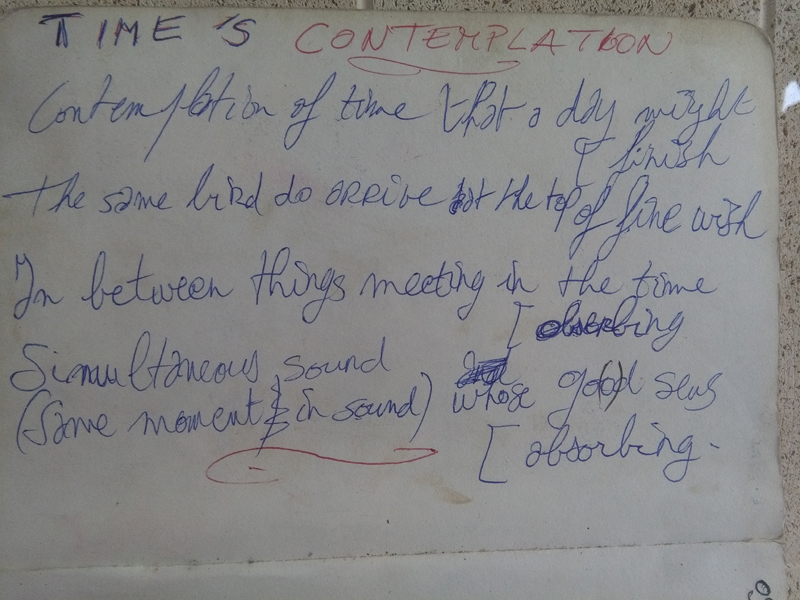 TIME'S CONTEMPLATION
Contemplation of time that a day might
[ finish
The same bird do arrive at the top of fine wish
In between things meeting in the time
[ absorbing
Simultaneous sound
(Same moment & in sound) whose go(o)d sens
[ absorbing.